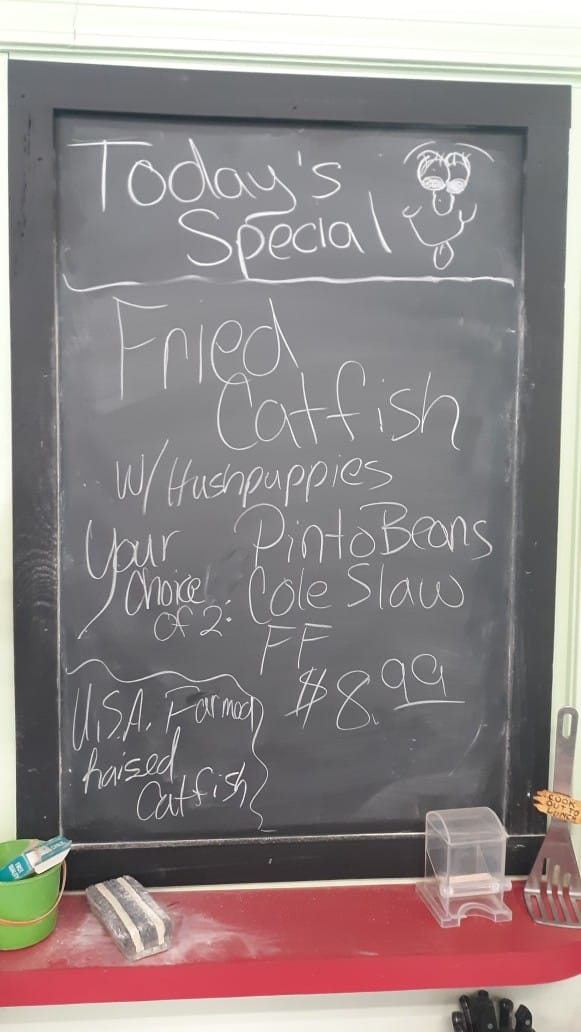 Today's
Special
Fried
Catfish
W/Hushpuppies
Your Choice of 2:
Pinto Beans
Cole Slaw
FF
$8.99
U.S.A. Farmed
Raised
Catfish
COOK
OUT TO
LUNCH